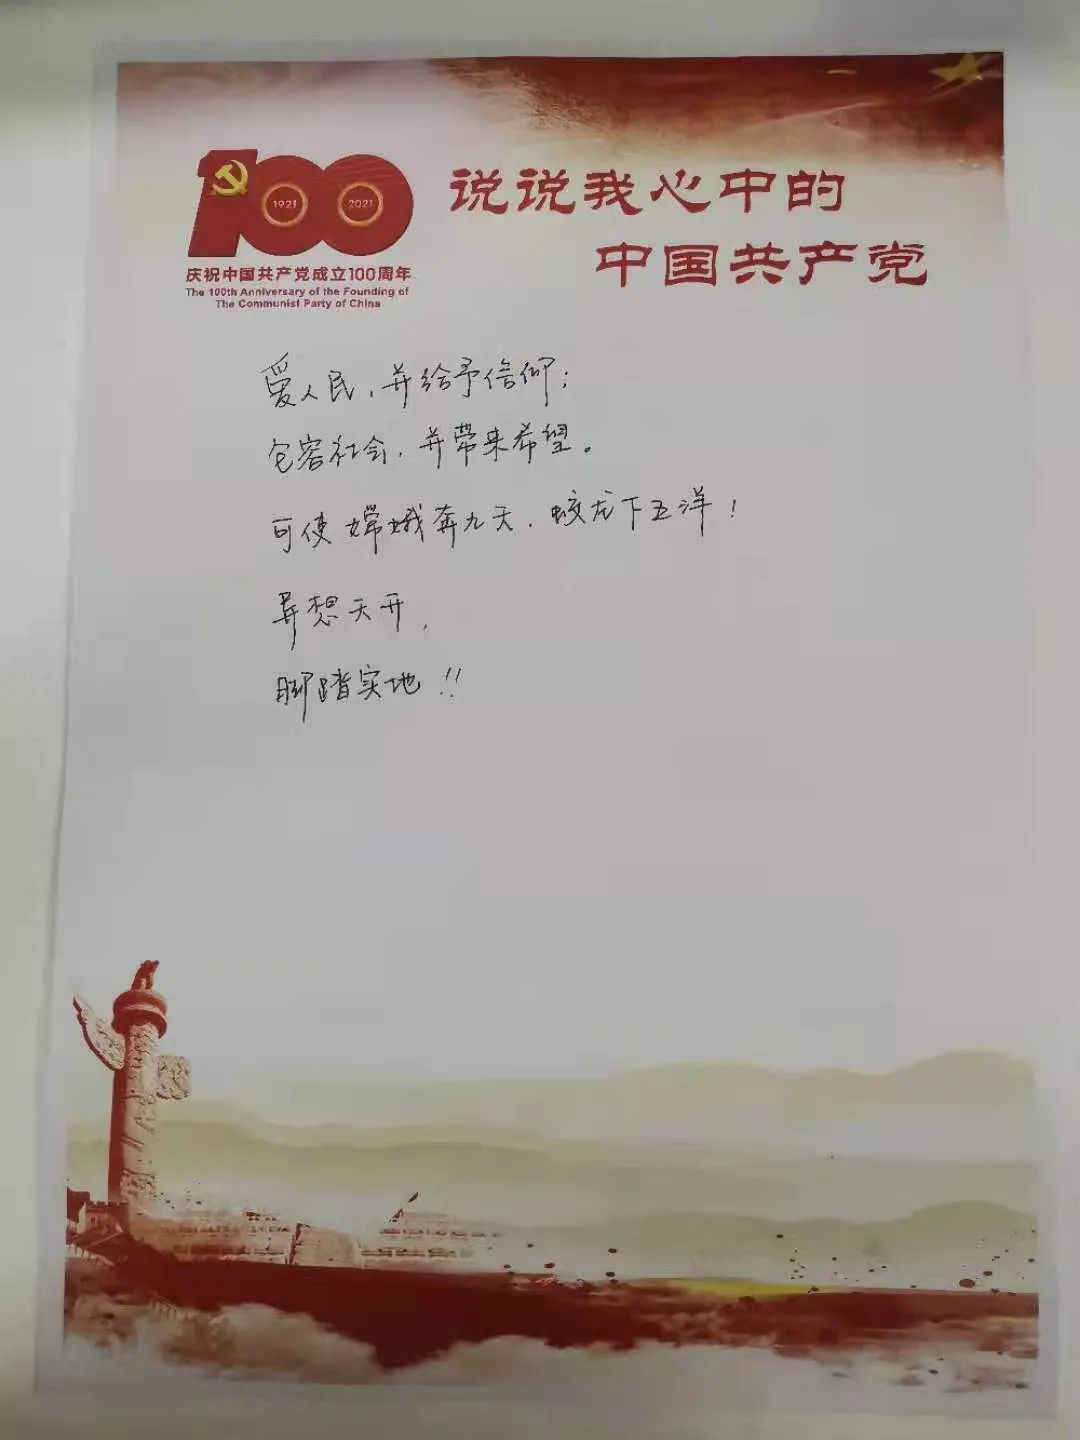 100
1921
2021
庆祝中国共产党成立100周年
The 100th Anniversary of the Founding of
The Communist Party of China
说说我心中的
中国共产党
爱人民，并给予信仰；
包容社会，并带来希望。
可使嫦娥奔九天，蛟龙下五洋！
异想天开，
脚踏实地！！